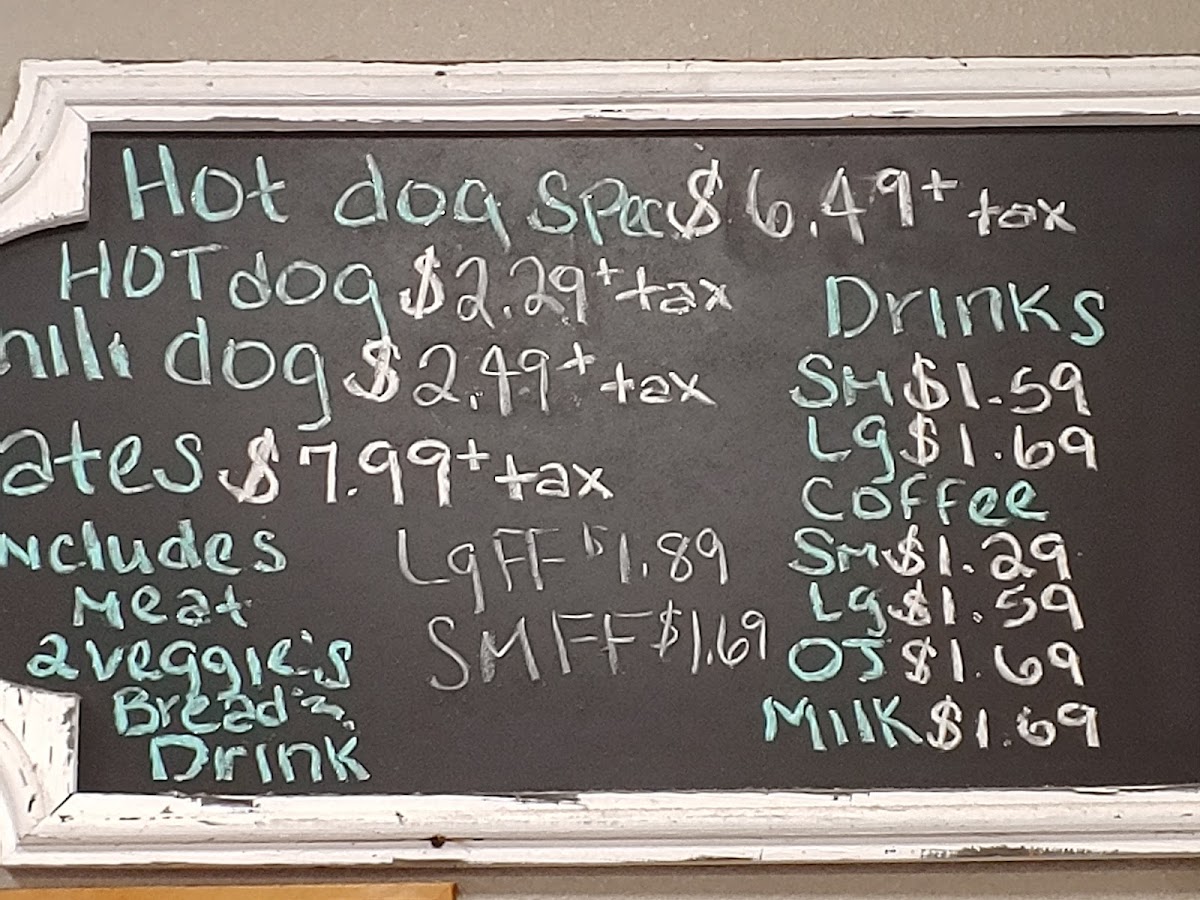 Hot dog Spec $6.49 + tax
HOT dog $2.29 + tax
hili dog $2.49 + tax
ates $7.99 + tax
ncludes
Meat
2 veggie's
Bread
Drink
Lg FF $1.89
SM FF $1.69
Drinks
SM $1.59
Lg $1.69
Coffee
SM $1.29
Lg $1.59
OJ $1.69
Milk $1.69